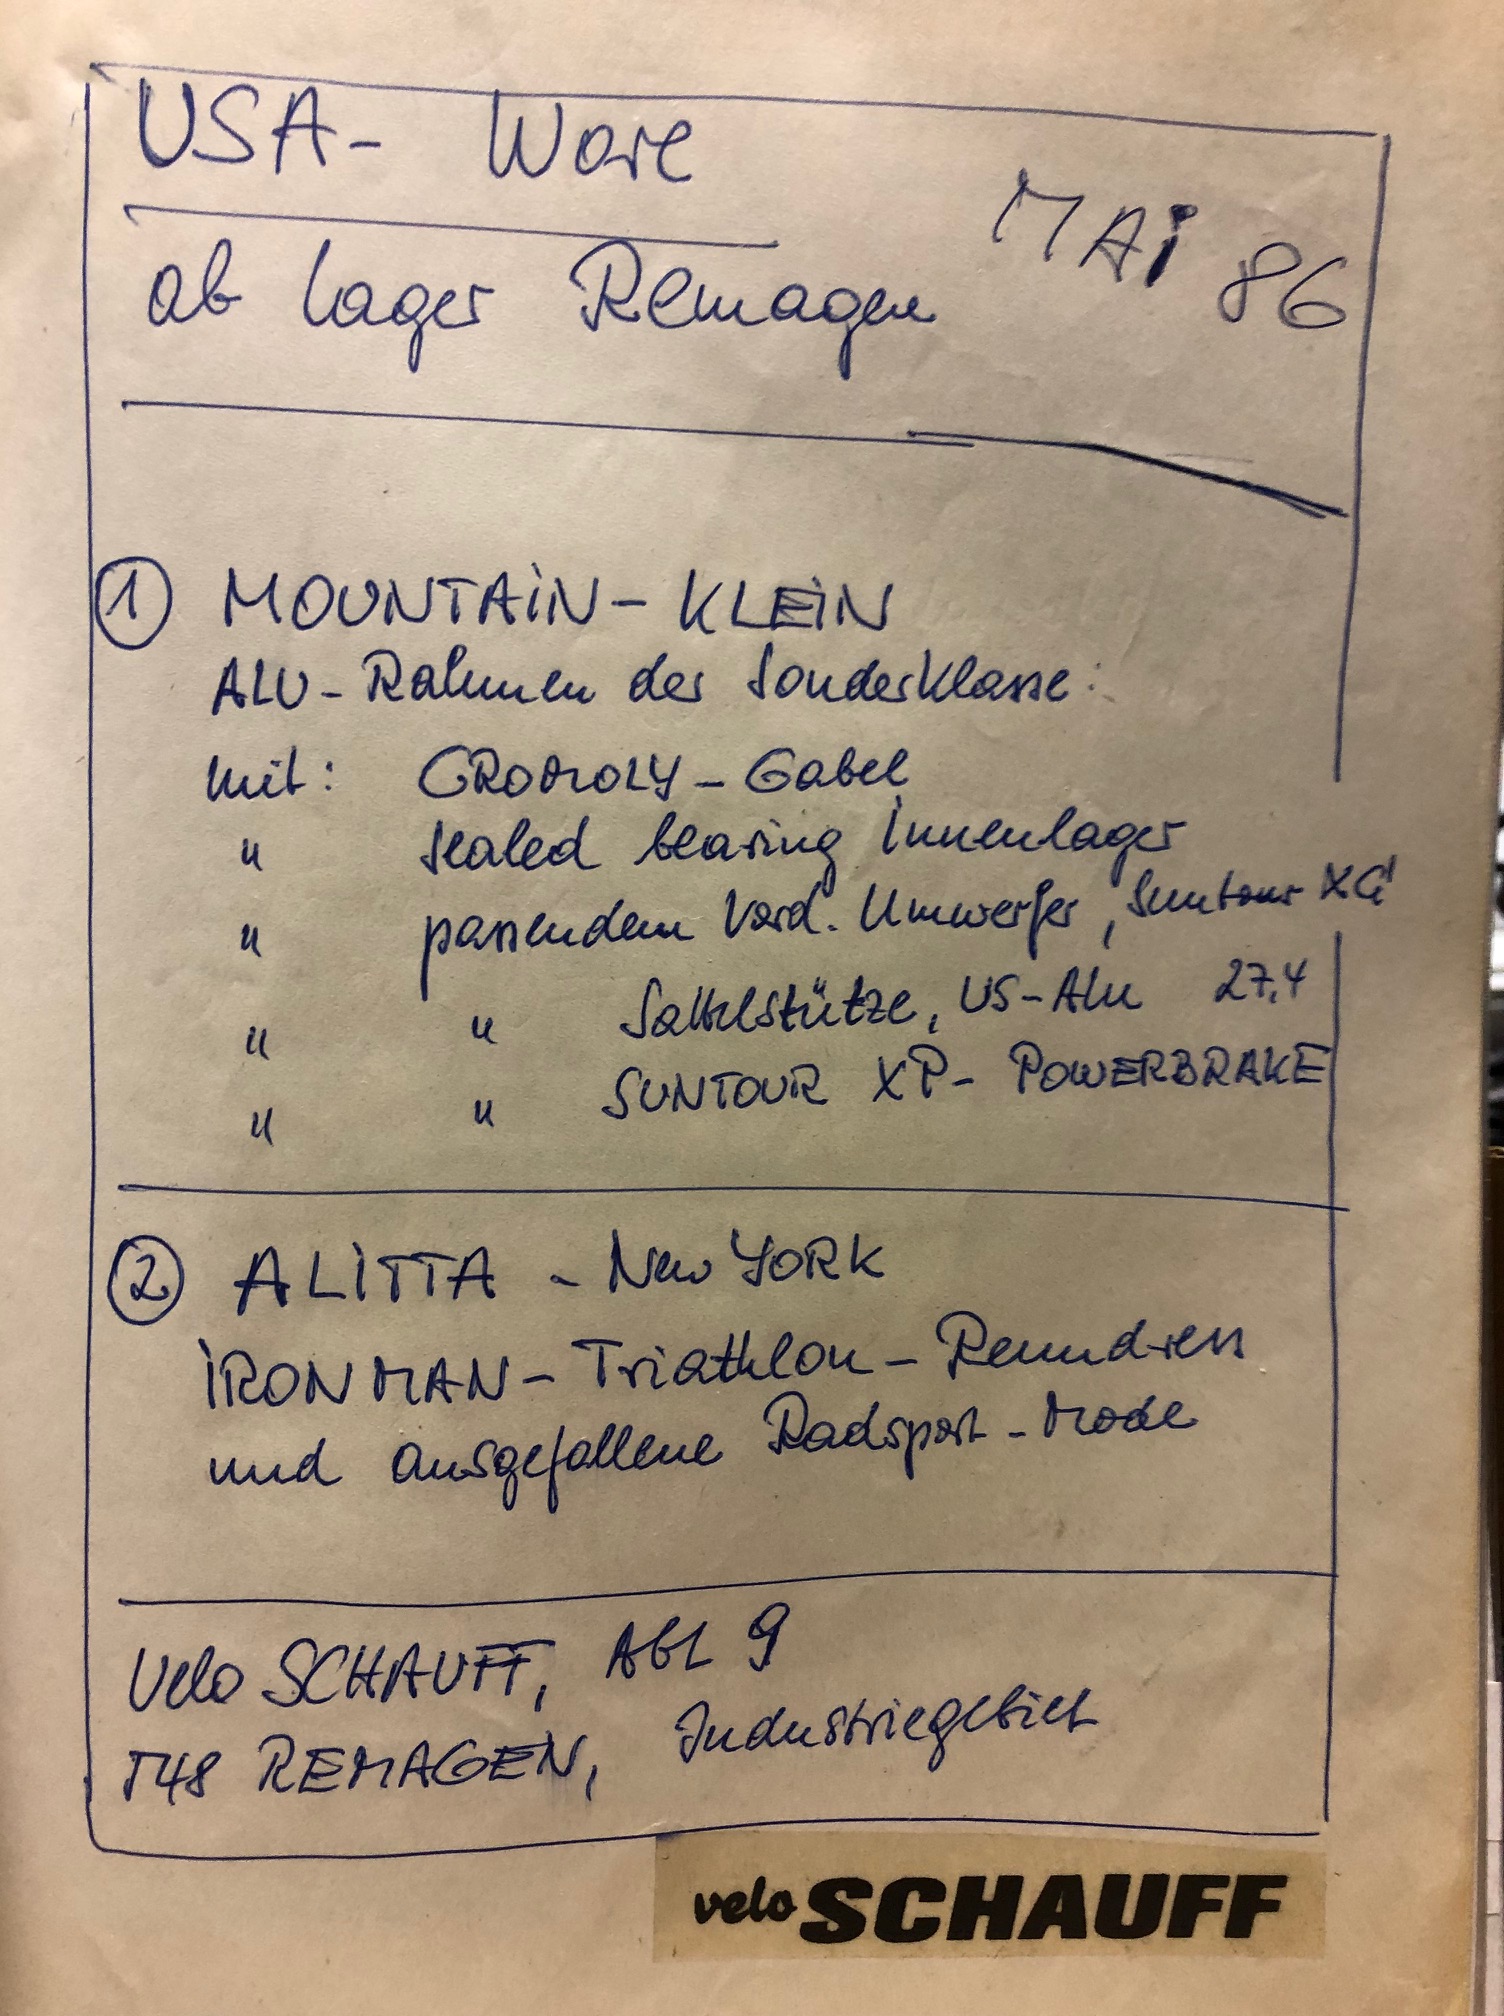 USA- Ware
MAi 86
ab Lager Remagen
1 MOUNTAiN- KLEiN
ALU-Rahmen der Sonderklasse:
mit: CROMOLY-Gabel
" sealed bearing Innenlager
" passendem Vord. Umwerfer, Suntour XC
" " Sattelstütze, US-Alu 27,4
" " SUNTOUR XP- POWERBRAKE
2 ALiTTA - New YORK
iRONMAN-Triathlon-Renndress
und ausgefallene Radsport-Mode
Velo SCHAUFF, Abt 9
548 REMAGEN, Industriegebiet
velo SCHAUFF